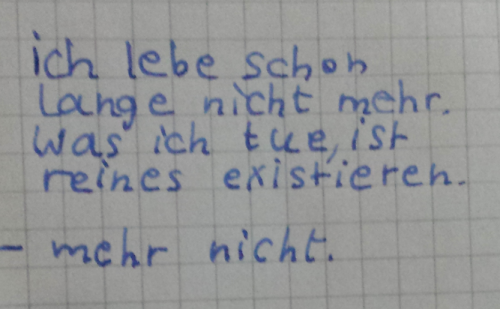 ich lebe schon
lange nicht mehr.
was ich tue, ist
reines existieren.
- mehr nicht.